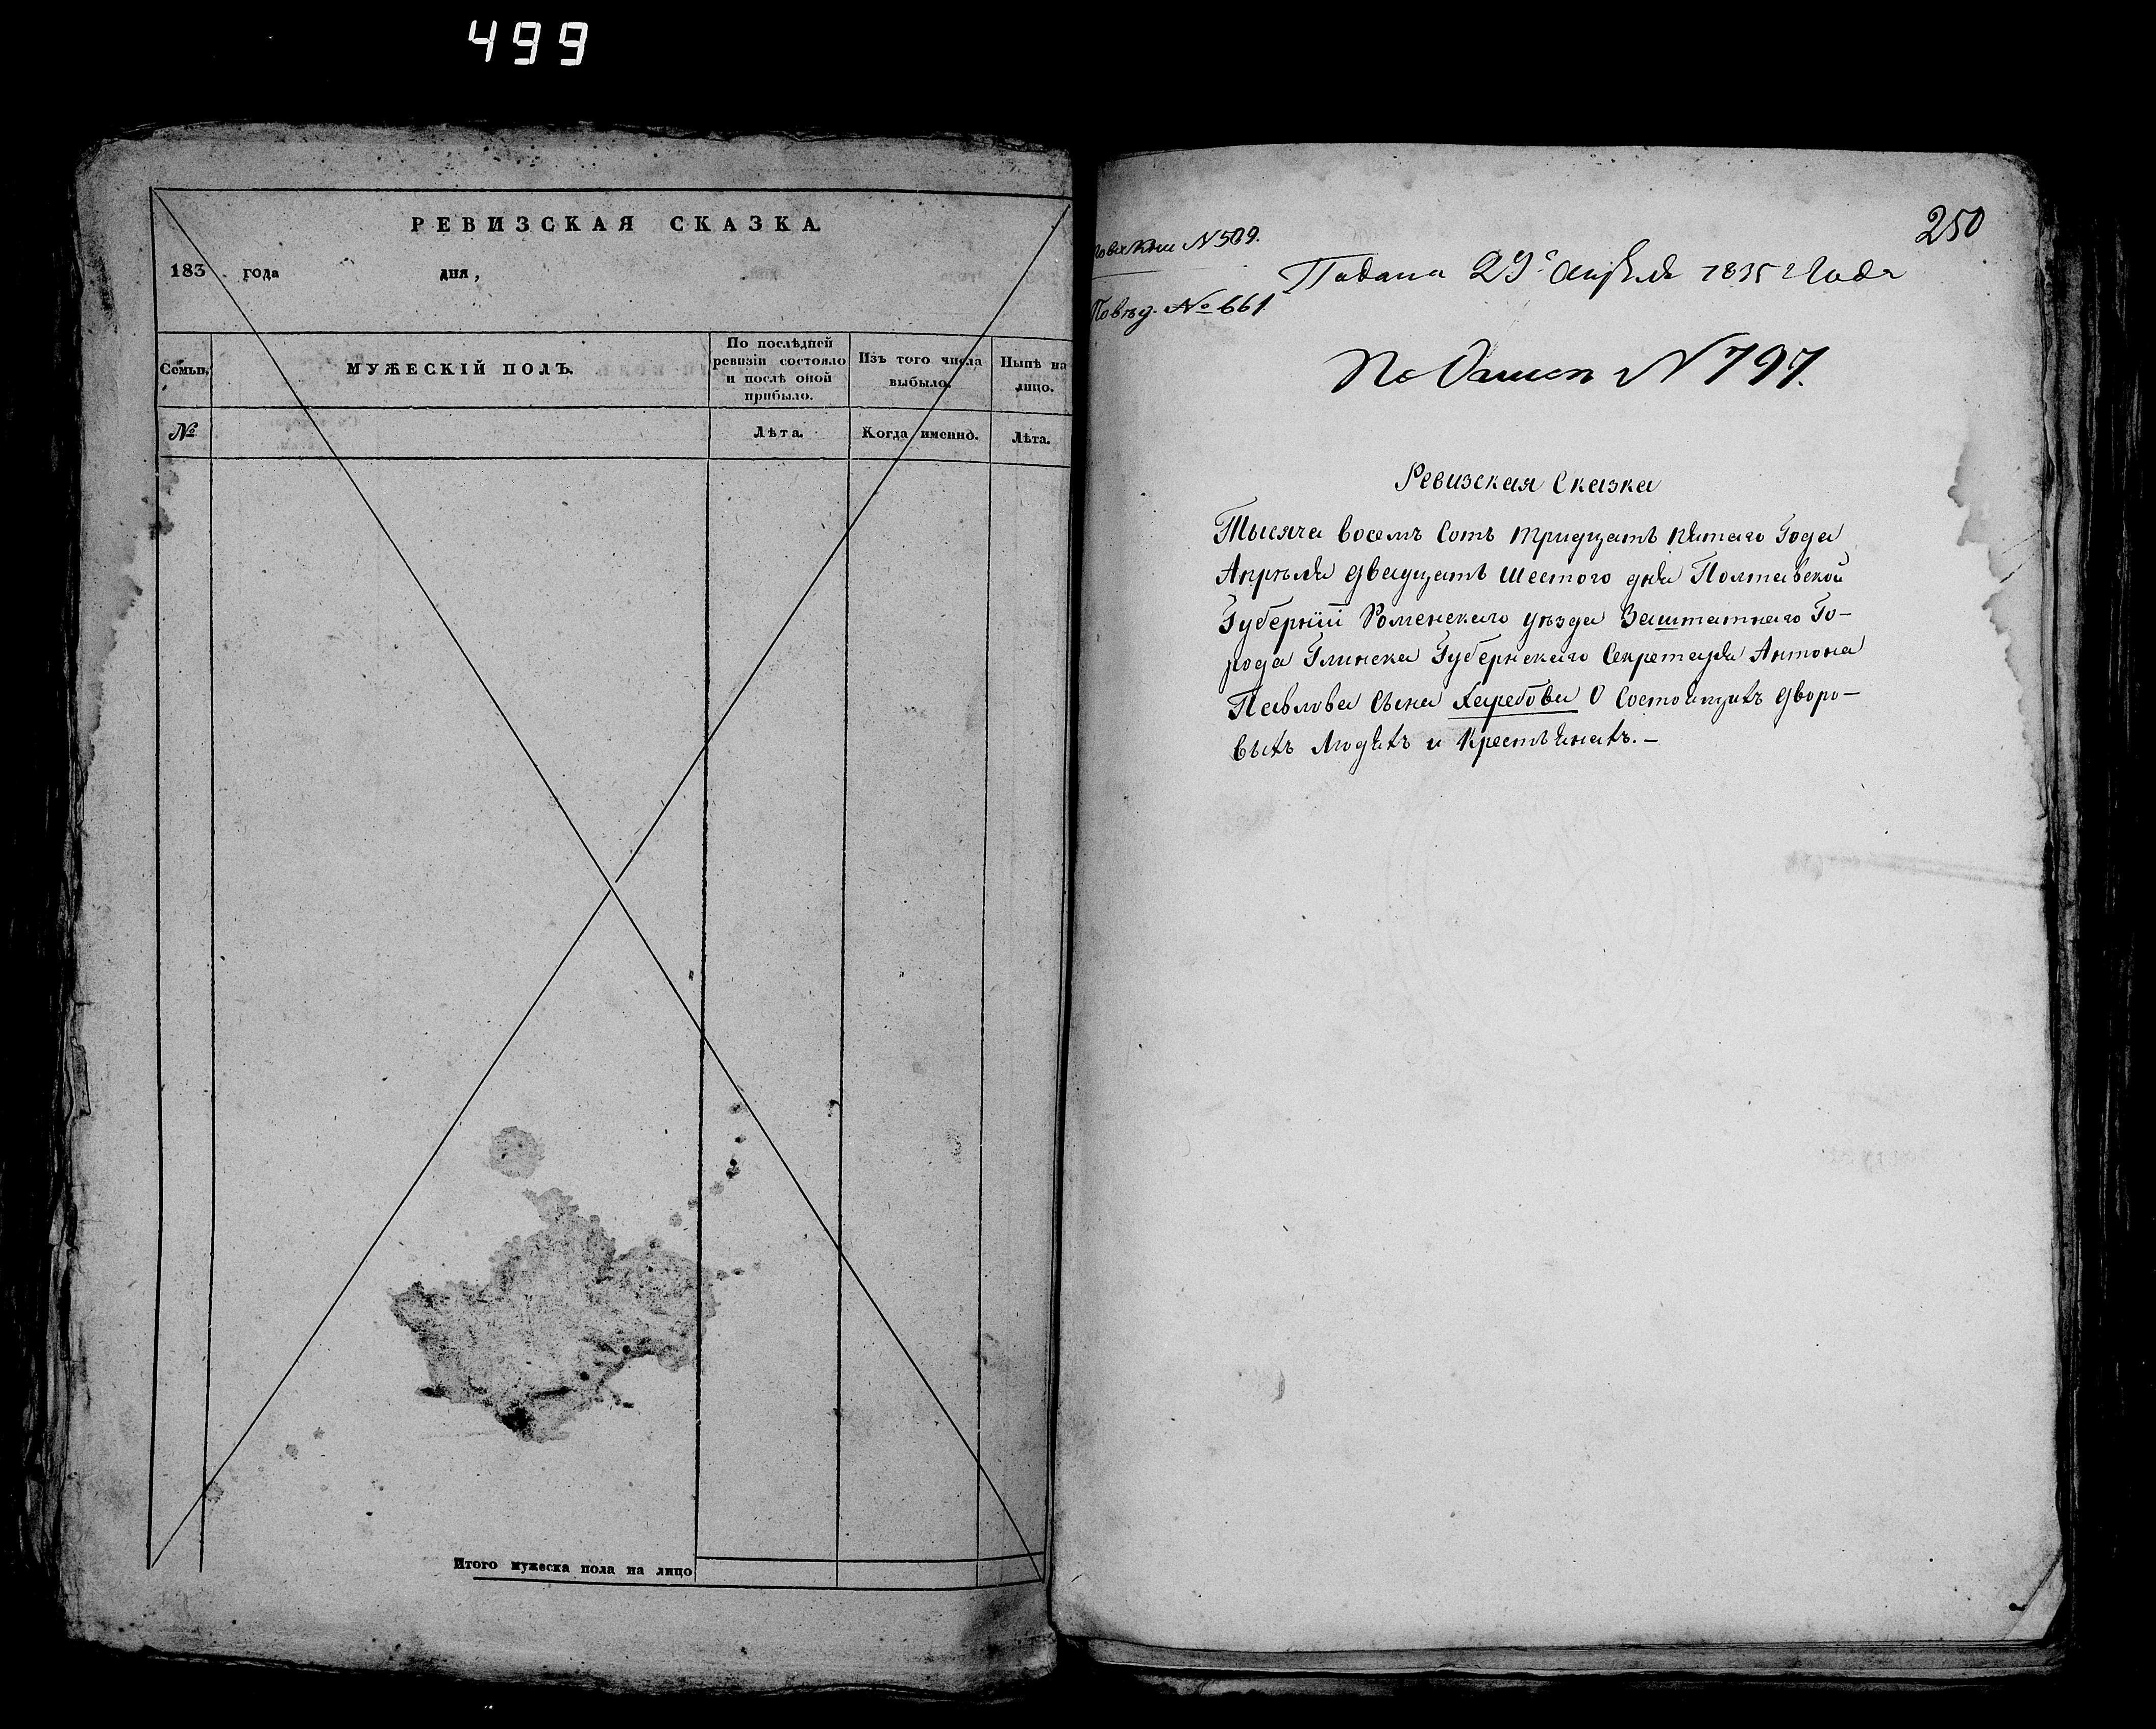 499
РЕВИЗСКАЯ СКАЗКА
183 года дня,
Семьи.
МУЖЕСКІЙ ПОЛЪ.
По послѣдней
ревизіи состояло
и послѣ оной
прибыло.
Изъ того числа
выбыло.
Нынѣ на
лицо.
№
Лѣта.
Когда именно.
Лѣта.
Итого мужеска пола на лицо
250
N 509.
Повѣд. № 661
Подана 29 апреля 1835 года
N 797.
Ревизская Сказка
Тысяча восемъ Сотъ тридцать пятаго Года
Апрѣля двадцать шестого дня Полтавской
Губерніи Роменскаго уѣзда Заштатнаго Го-
рода Глинска Губернскаго Секретаря Антона
Павлова Сына Харебова О Состоящихъ дворо-
выхъ людяхъ и Крестьянахъ.-